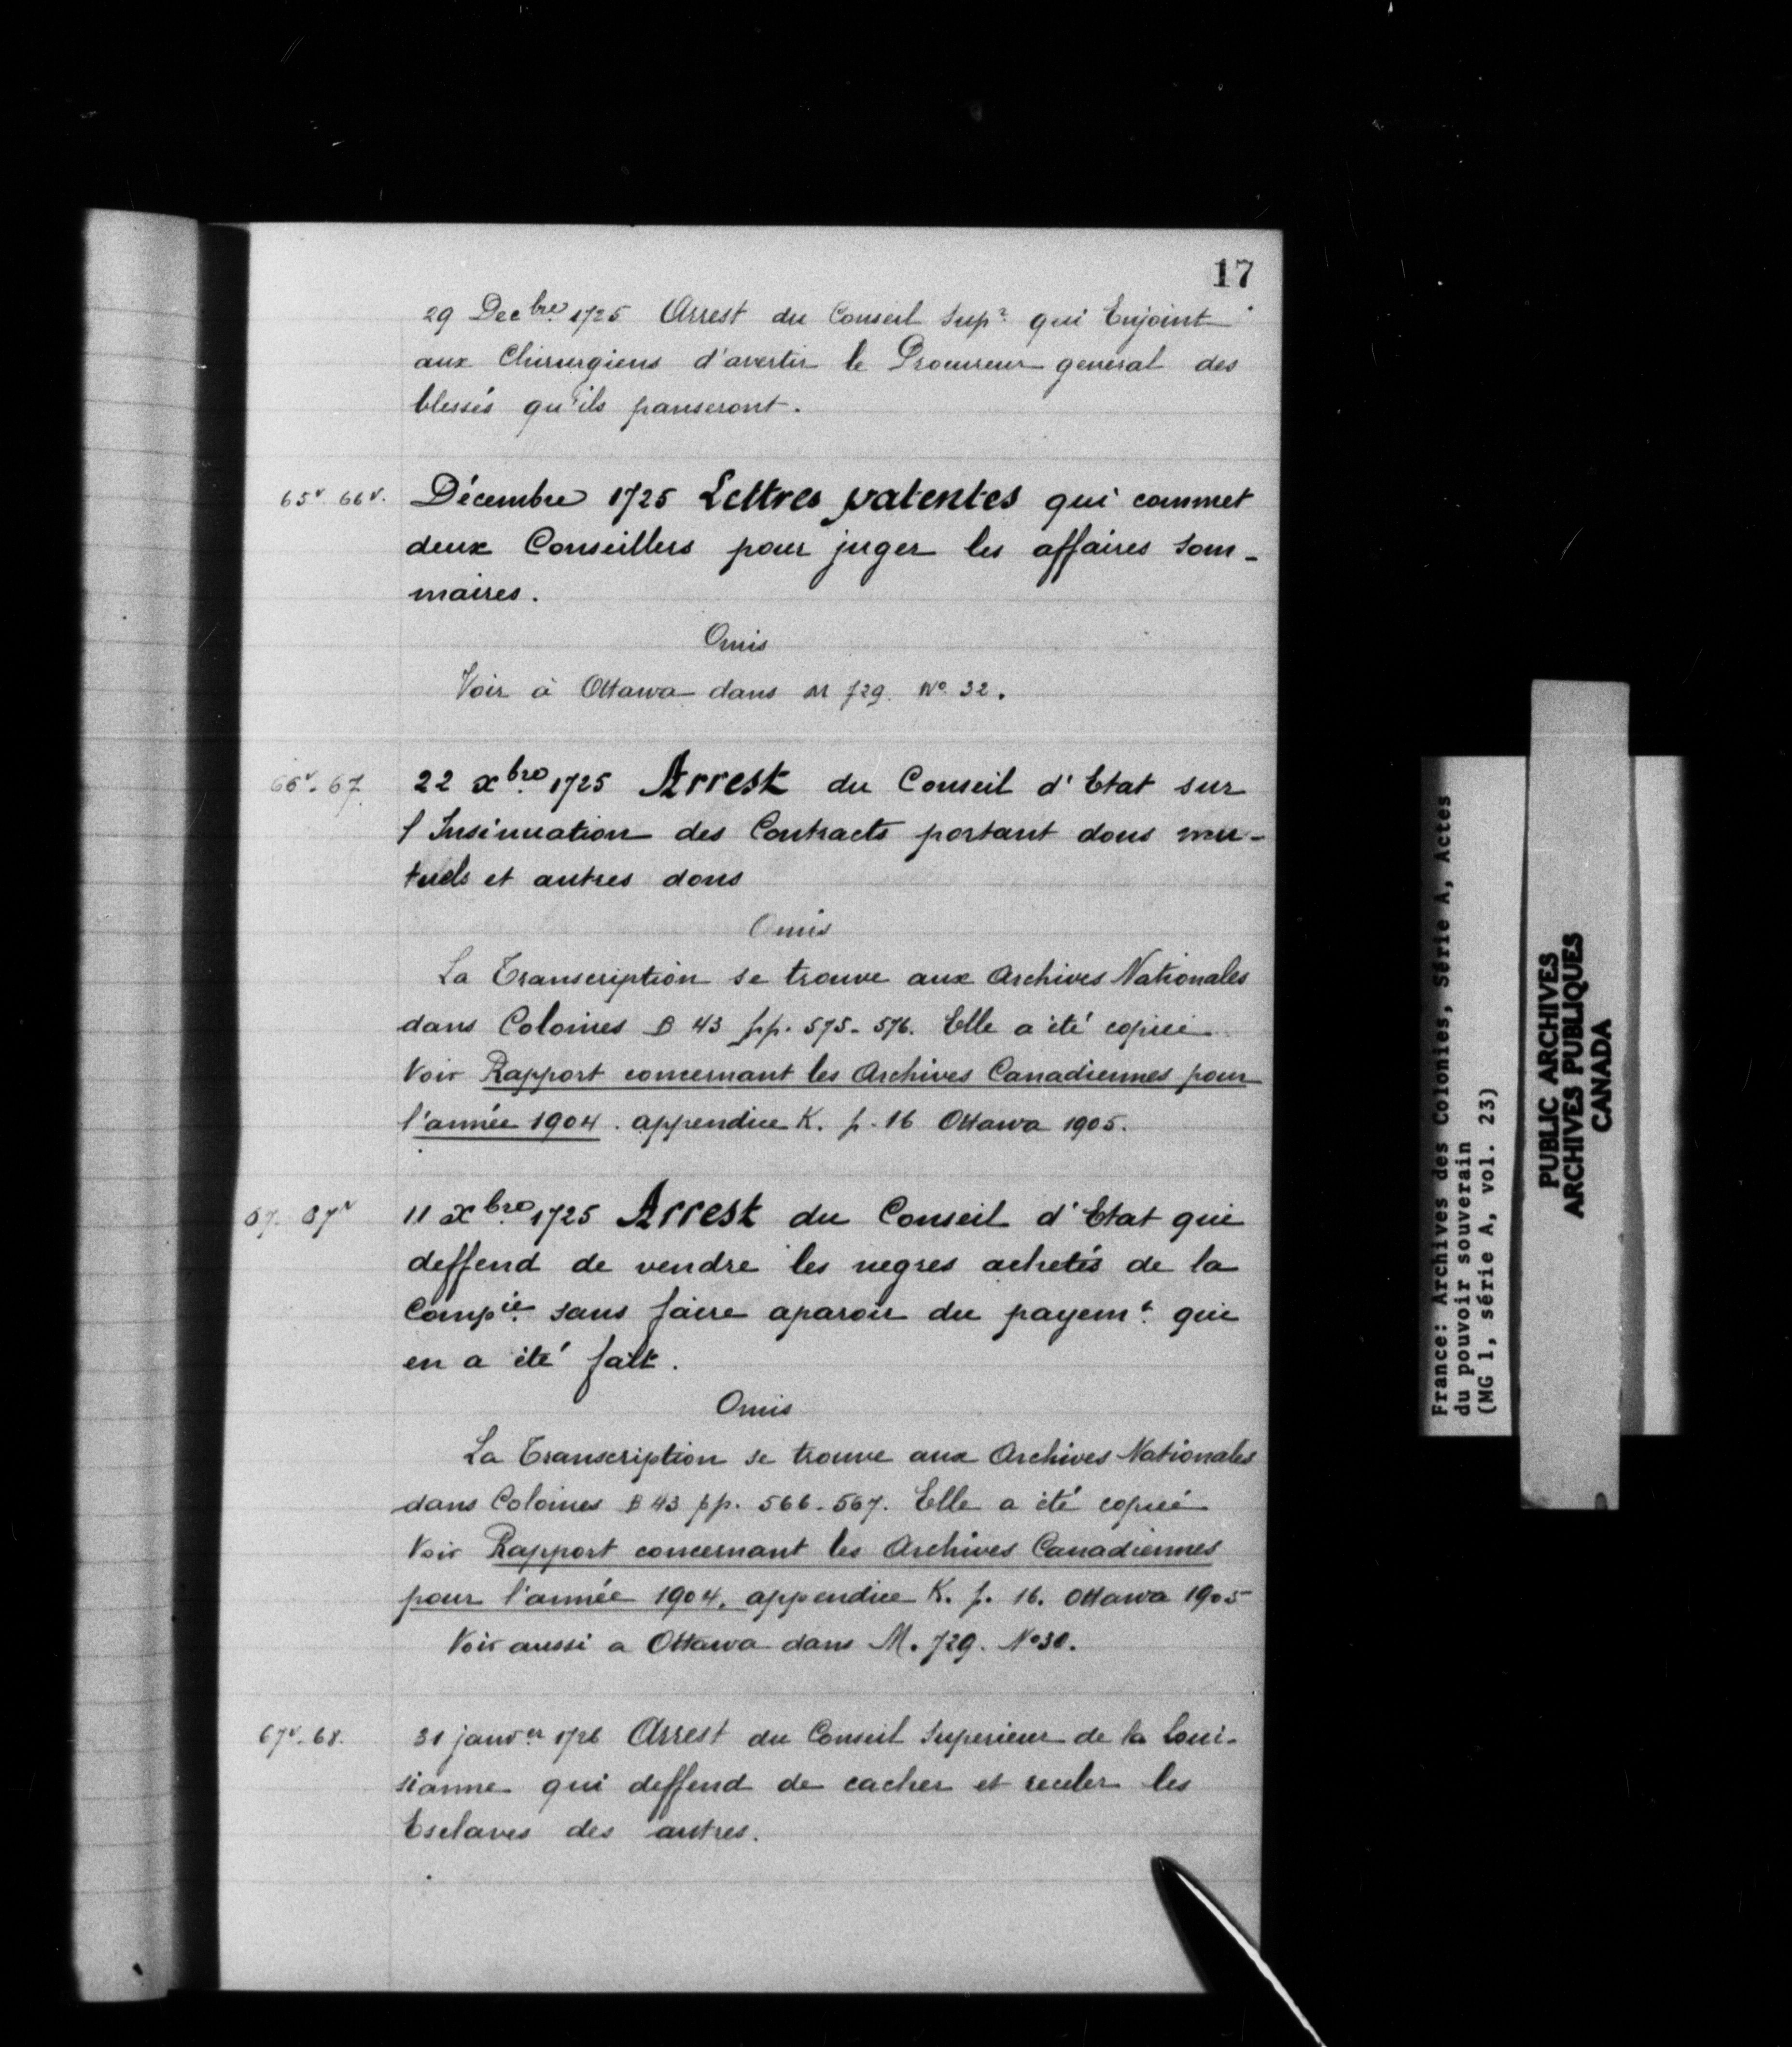 17
29 Decbre 1725 Arrest du Conseil Supr qui Enjoint
aux Chirurgiens d'avertir le Procureur general des
blessés qu'ils panseront.
65v 66v. Décembre 1725 Lettres patentes qui commet
deux Conseillers pour juger les affaires som-
maires.
Omis
Voir à Ottawa dans M 729. No 32.
66v. 67. 22 xbre 1725 Arrest du Conseil d'Etat sur
l'Insinuation des Contracts portant dons mu-
tuels et autres dons
Omis
La Transcription se trouve aux Archives Nationales
dans Colonies B 43 pp. 575-576. Elle a été copiée
Voir Rapport concernant les Archives Canadiennes pour
l'année 1904. appendice K. p. 16 Ottawa 1905.
67. 67v 11 xbre 1725 Arrest du Conseil d'Etat qui
deffend de vendre les negres achetés de la
Compie sans faire aparoir du payemt qui
en a été fait.
Omis
La Transcription se trouve aux Archives Nationales
dans Colonies B 43 pp. 566-567. Elle a été copiée
Voir Rapport concernant les Archives Canadiennes
pour l'année 1904. appendice K. p. 16. Ottawa 1905
Voir aussi a Ottawa dans M. 729. No 30.
67v-68. 31 janver 1726 Arrest du Conseil Superieur de la Loui-
sianne qui deffend de cacher et receler les
Esclaves des autres.
France: Archives des Colonies, Série A, Actes
du pouvoir souverain
(MG 1, série A, vol. 23)
PUBLIC ARCHIVES
ARCHIVES PUBLIQUES
CANADA